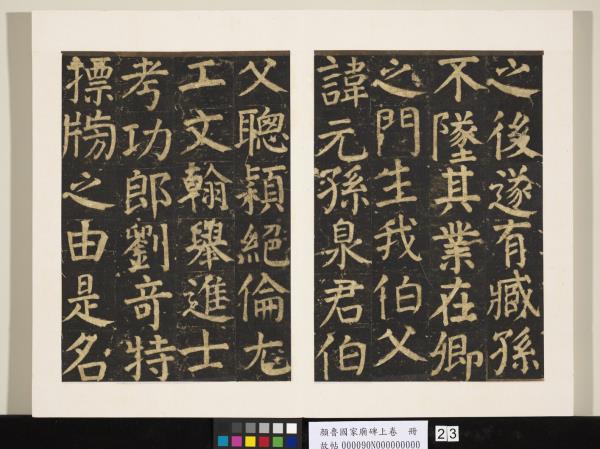 之後遂有臧孫
不墜其業在卿
之門生我伯父
諱元孫泉君伯
父聰頴絕倫尤
工文翰舉進士
考功郎劉竒特
摽牓之由是名
顏魯國家廟碑上卷 冊
故帖 000090N000000000
23